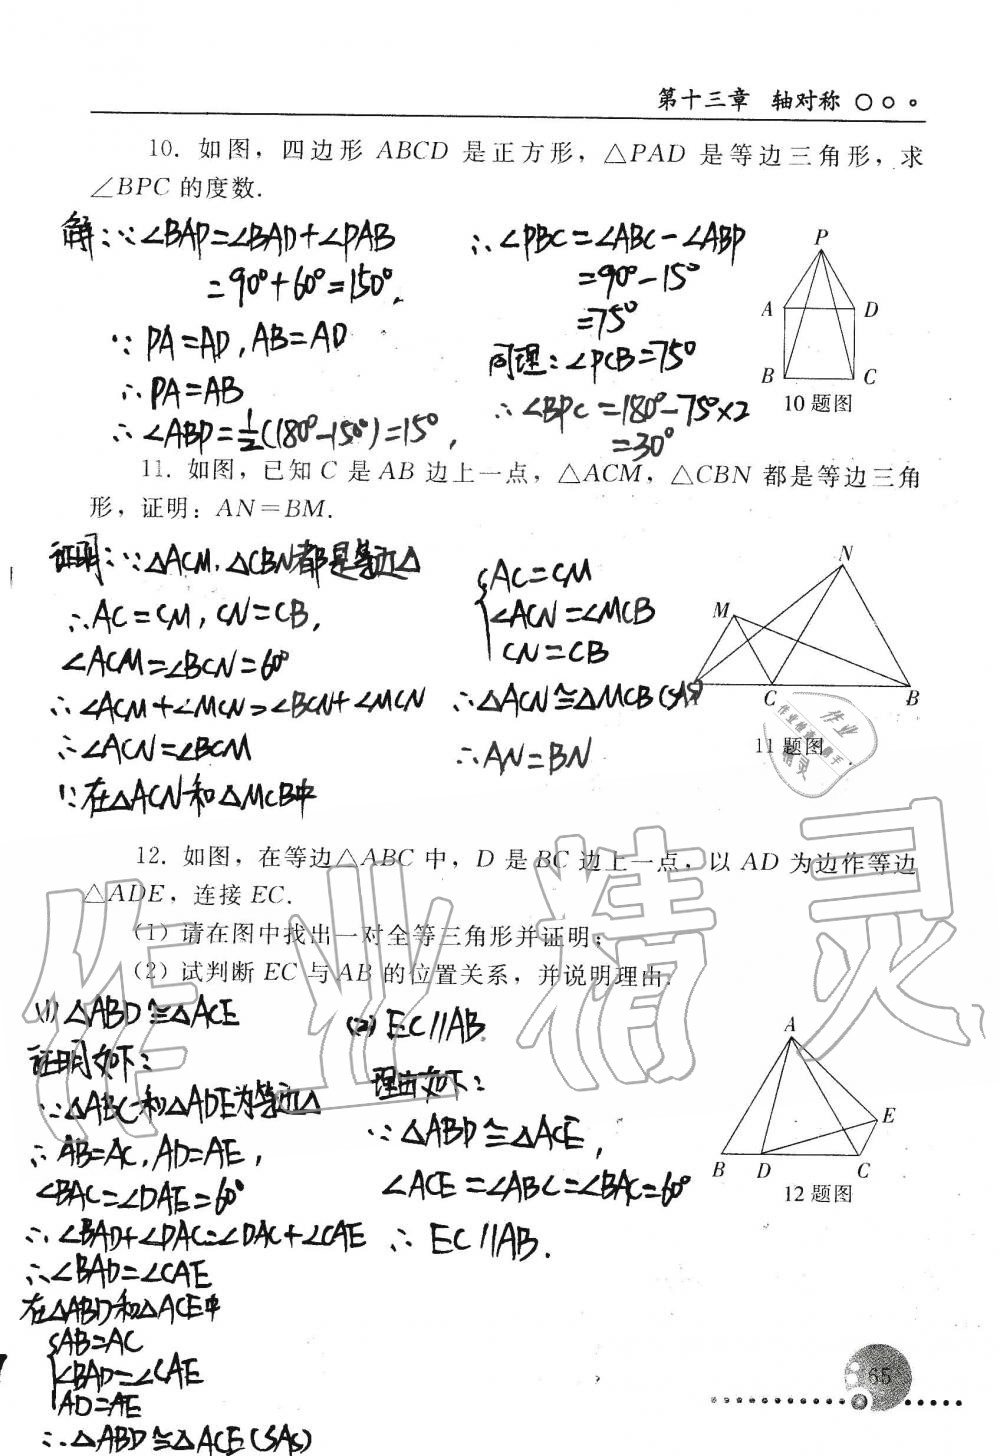 第十三章 轴对称
10. 如图，四边形 ABCD 是正方形，△PAD 是等边三角形，求
∠BPC 的度数.
解：∵∠BAP=∠BAD+∠PAB
=90°+60°=150°.
∵ PA=AD, AB=AD
∴ PA=AB
∴ ∠ABP=½(180°-150°)=15°,
∴ ∠PBC=∠ABC-∠ABP
=90°-15°
=75°
同理：∠PCB=75°
∴ ∠BPC=180°-75°×2
=30°
P
A D
B C
10 题图
11. 如图，已知 C 是 AB 边上一点，△ACM，△CBN 都是等边三角
形，证明：AN=BM.
证明：∵△ACM, △CBN都是等边△
∴AC=CM, CN=CB,
∠ACM=∠BCN=60°
∴∠ACM+∠MCN=∠BCN+∠MCN
∴∠ACN=∠BCM
∵在△ACN和△MCB中
AC=CM
∠ACN=∠MCB
CN=CB
∴△ACN≌△MCB(SAS)
∴AN=BN
N
M
C B
11 题图
作业
作业检查小助手
精灵
12. 如图，在等边△ABC 中，D 是 BC 边上一点，以 AD 为边作等边
△ADE，连接 EC.
(1) 请在图中找出一对全等三角形并证明；
(2) 试判断 EC 与 AB 的位置关系，并说明理由.
(1) △ABD≌△ACE
证明如下：
∵△ABC和△ADE为等边△
∴AB=AC, AD=AE,
∠BAC=∠DAE=60°
∴∠BAD+∠DAC=∠DAC+∠CAE
∴∠BAD=∠CAE
在△ABD和△ACE中
AB=AC
∠BAD=∠CAE
AD=AE
∴△ABD≌△ACE(SAS)
(2) EC//AB
理由如下：
∵△ABD≌△ACE,
∠ACE=∠ABC=∠BAC=60°
∴ EC//AB.
A
E
B D C
12 题图
作业精灵
65